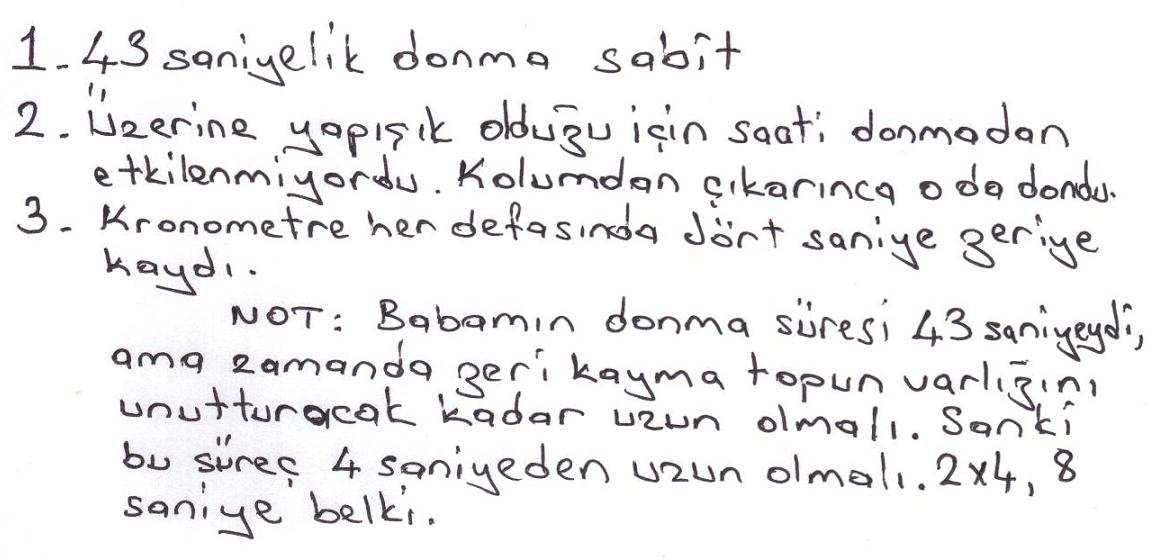 1. 43 saniyelik donma sabit
2. Üzerine yapışık olduğu için saati donmadan
etkilenmiyordu. Kolumdan çıkarınca o da dondu.
3. Kronometre her defasında dört saniye geriye
kaydı.
NOT: Babamın donma süresi 43 saniyeydi,
ama zamanda geri kayma topun varlığını
unutturacak kadar uzun olmalı. Sanki
bu süreç 4 saniyeden uzun olmalı. 2x4, 8
saniye belki.